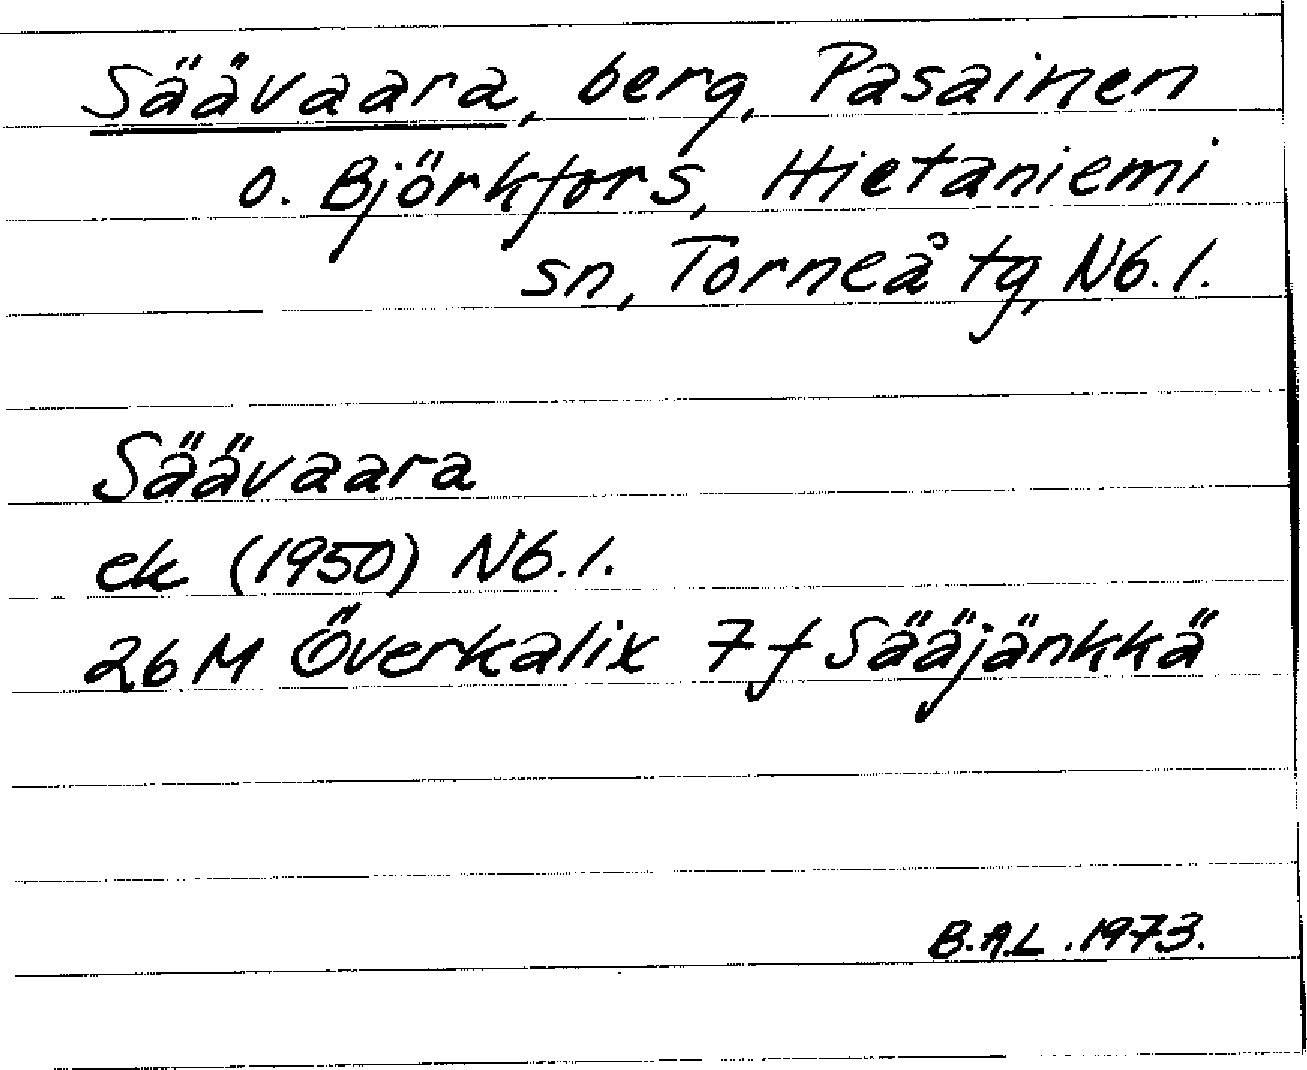 Säävaara, berg, Pasainen
o. Björkfors, Hietaniemi
sn, Torneå tg, Nb. l.
Säävaara
ek (1950) Nb. l.
26 M Överkalix 7 f Sääjänkkä
B.A.L. 1973.